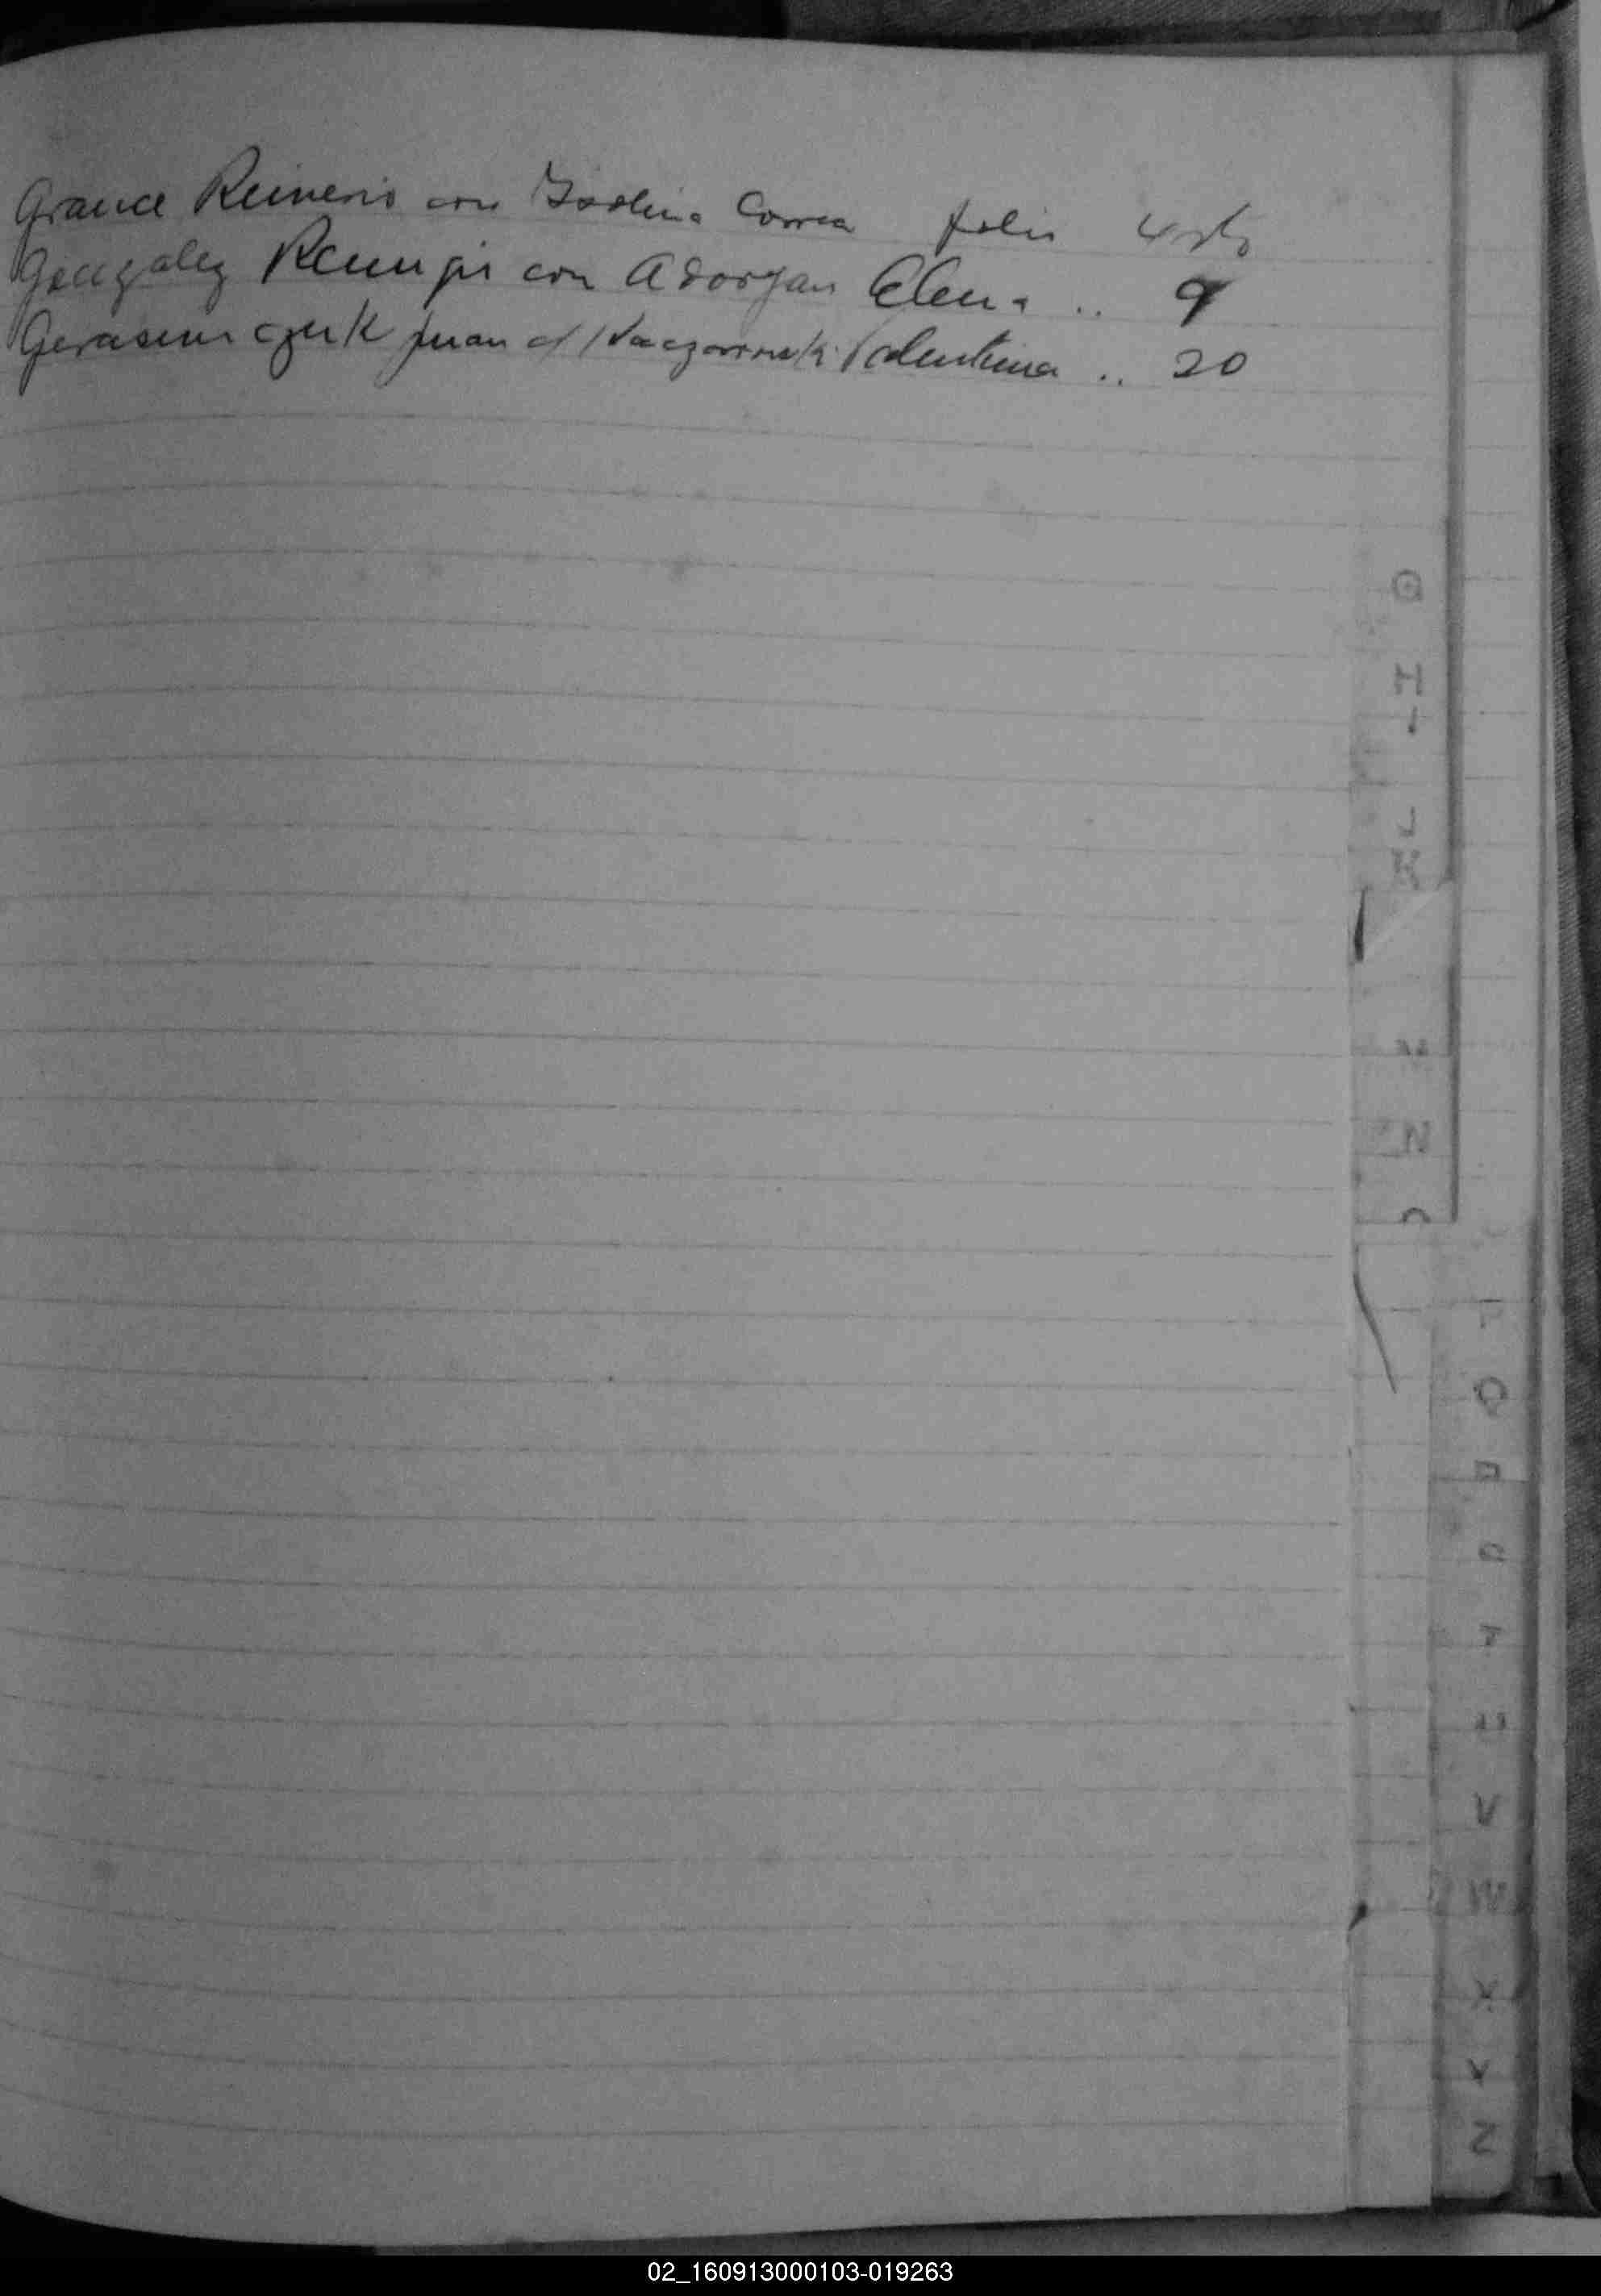 Grance Reinerio con Isolina Correa folio
Gonzalez Remigio con Adorjan Elena .. 9
Gerasimczuk Juan c/ Kaczorowski Valentina .. 20
G
H
I
J
K
M
N
P
Q
R
S
T
U
V
W
X
Y
Z
02_160913000103-019263